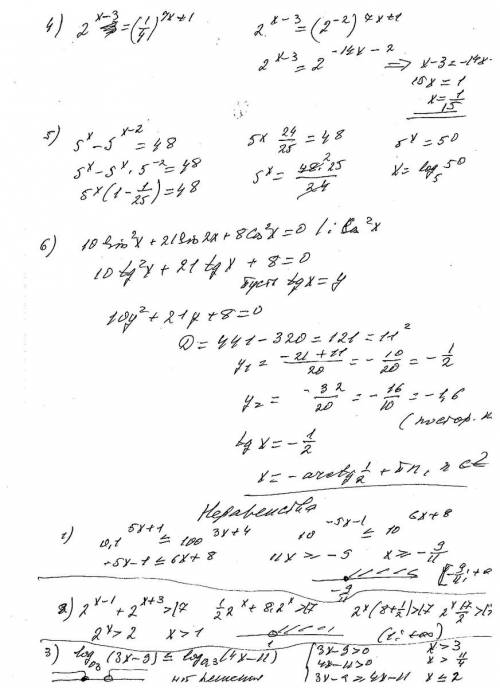 4) 2^{x-3} = (1/4)^{7x+1}   2^{x-3} = (2^{-2})^{7x+1}
2^{x-3} = 2^{-14x-2} => x-3 = -14x-
15x = 1
x = 1/15
5) 5^x - 5^{x-2} = 48   5^x 24/25 = 48   5^x = 50
5^x - 5^x · 5^{-2} = 48   5^x = 48·25/24   x = log_5 50
5^x (1 - 1/25) = 48
6) 10 sin²x + 21 sin2x + 8 cos²x = 0 |: cos²x
10 tg²x + 21 tg x + 8 = 0
Пусть tg x = y
10y² + 21y + 8 = 0
D = 441 - 320 = 121 = 11²
y₁ = (-21+11)/20 = -10/20 = -1/2
y₂ = -32/20 = -16/10 = -1,6
(постор. к
tg x = -1/2
x = -arctg 1/2 + πn, n ∈ Z
Неравенства
1) 0,1^{5x+1} ≤ 100^{3x+4}   10^{-5x-1} ≤ 10^{6x+8}
-5x-1 ≤ 6x+8   11x ≥ -9   x ≥ -9/11
-9/11   [-9/11; +∞
2) 2^{x-1} + 2^{x+3} > 17   1/2 2^x + 8·2^x > 17   2^x (8+1/2) > 17   2^x 17/2 > 17
2^x > 2   x > 1   1   (1; +∞)
3) log_{0,3} (3x-9) ≤ log_{0,3} (4x-11)   { 3x-9 > 0   x > 3
4x-11 > 0   x > 11/4
нет решения   3x-9 ≥ 4x-11   x ≤ 2